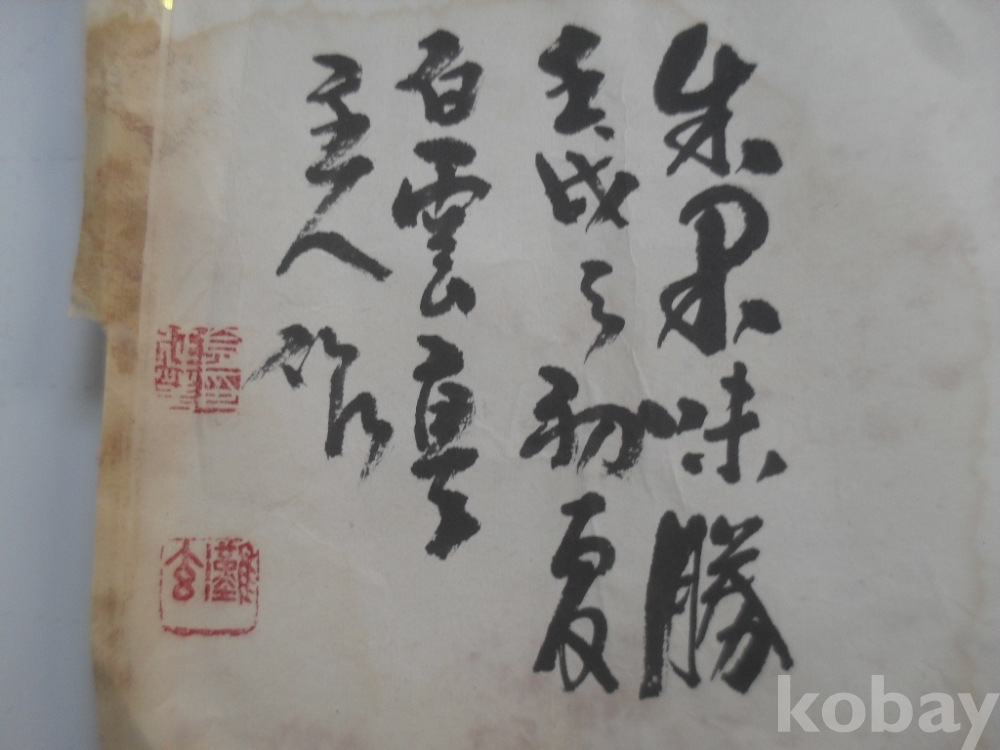 朱果味勝
壬戌之初夏
白雲真
主人作
kobay